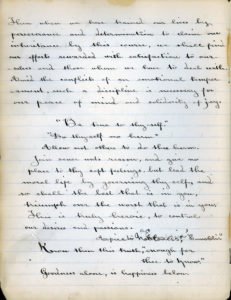 Then when we have trained our lives by
perseverance and determination to claim our
inheritance by this course, we shall find
our efforts rewarded with satisfaction to our-
selves and those whom we have to deal with.
Amid the conflicts of an emotional temper-
ament, such a discipline is necessary for
our peace of mind and solidity of joy.
"Be true to thyself"
"Do thyself no harm"
Allow not others to do thee harm.
Join sense unto reason, and give no
place to thy soft feelings, but lead the
moral life by governing thy self, and
so shall the best that is in you,
triumph over the worst that is in you.
There is truly heroic, to control
our desires and passions.
Know then this truth, "enough for
thee to know"
Goodness alone, is happiness below.